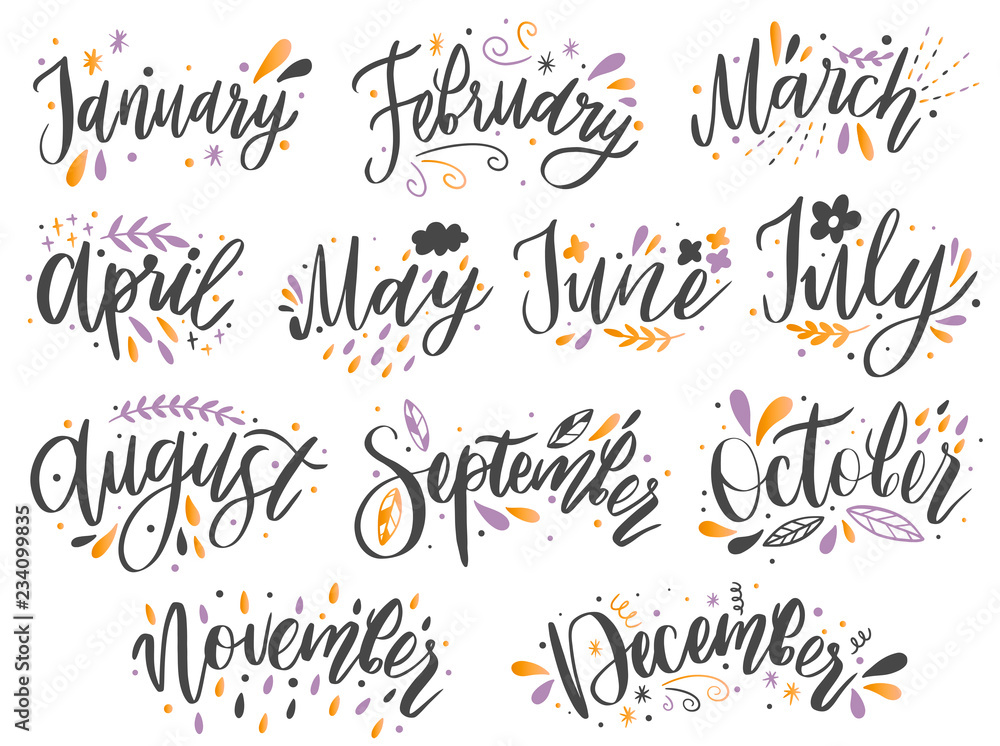 January February March
April May June July
August September October
November December
Adobe Stock | #234099835